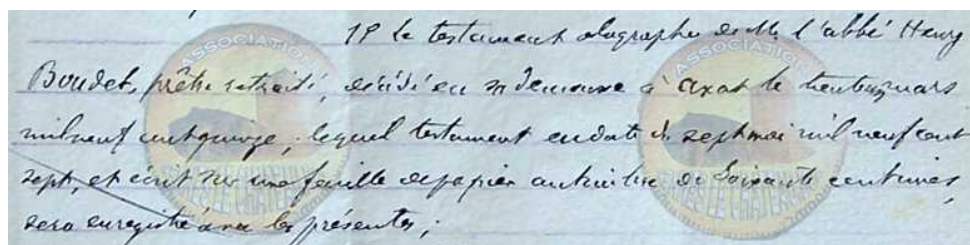 1º le testament olographe de M. l'abbé Henry
Boudet, prêtre retraité, décédé en sa demeure à Axat le trente mars
mil neuf cent quinze, lequel testament en date du sept mai mil neuf cent
sept, et écrit sur une feuille de papier au timbre de soixante centimes,
sera enregistré avec les présentes;
ASSOCIATION
ASSOCIATION